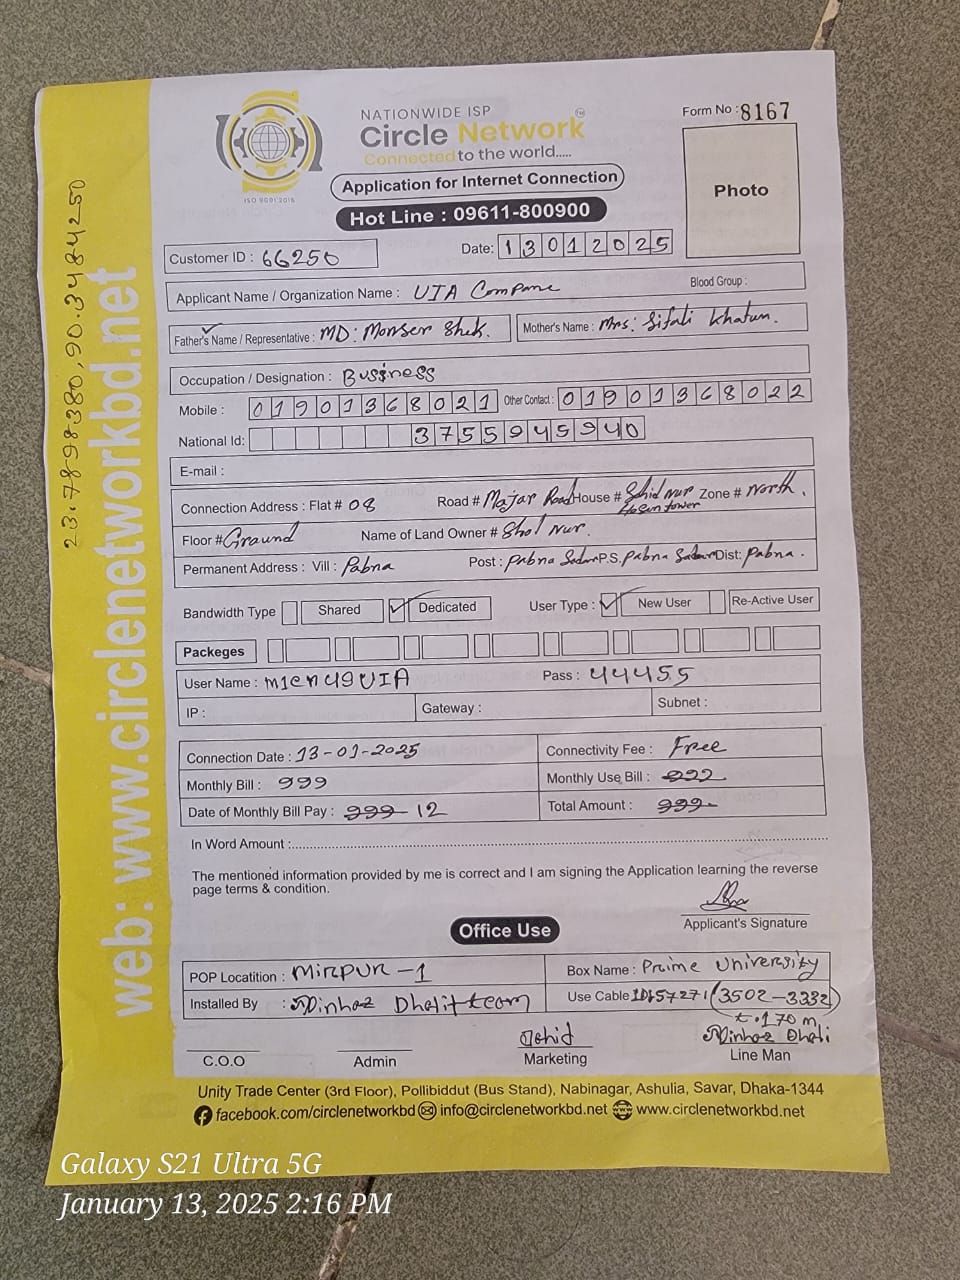 NATIONWIDE ISP
Circle Network
Connected to the world.....
ISO 9001:2015
Form No : 8167
Application for Internet Connection
Hot Line : 09611-800900
Photo
Customer ID : 66250
Date: 13012025
Applicant Name / Organization Name : UIA Compane
Blood Group :
Father's Name / Representative : MD: Monser Shek.
Mother's Name : Mrs: Sifali Khatun.
Occupation / Designation : Bussiness
Mobile : 01901368021 Other Contact : 01901368022
National Id: 3755945940
E-mail :
Connection Address : Flat # 08 Road # Majar Road House # Shid Nur Hosun tower Zone # North.
Floor # Graund Name of Land Owner # Shol Nur.
Permanent Address : Vill : Pabna Post : Pabna Sadar P.S. Pabna Sadar Dist: Pabna.
Bandwidth Type Shared Dedicated User Type : New User Re-Active User
Packeges
User Name : m1en49UIA Pass : 44455
IP : Gateway : Subnet :
Connection Date : 13-01-2025 Connectivity Fee : Free
Monthly Bill : 999 Monthly Use Bill : 999
Date of Monthly Bill Pay : 999 12 Total Amount : 999
In Word Amount :
The mentioned information provided by me is correct and I am signing the Application learning the reverse
page terms & condition.
Applicant's Signature
Office Use
POP Locatition : Mirpur -1 Box Name : Prime University
Installed By : Minhaz Dhali + team Use Cable ID:57271 (3502-3332)
t.170 m
C.O.O
Admin
Marketing
Minhaz Dhali
Line Man
Unity Trade Center (3rd Floor), Pollibiddut (Bus Stand), Nabinagar, Ashulia, Savar, Dhaka-1344
facebook.com/circlenetworkbd info@circlenetworkbd.net www.circlenetworkbd.net
web: www.circlenetworkbd.net
23.7898380,90.3484250
Galaxy S21 Ultra 5G
January 13, 2025 2:16 PM